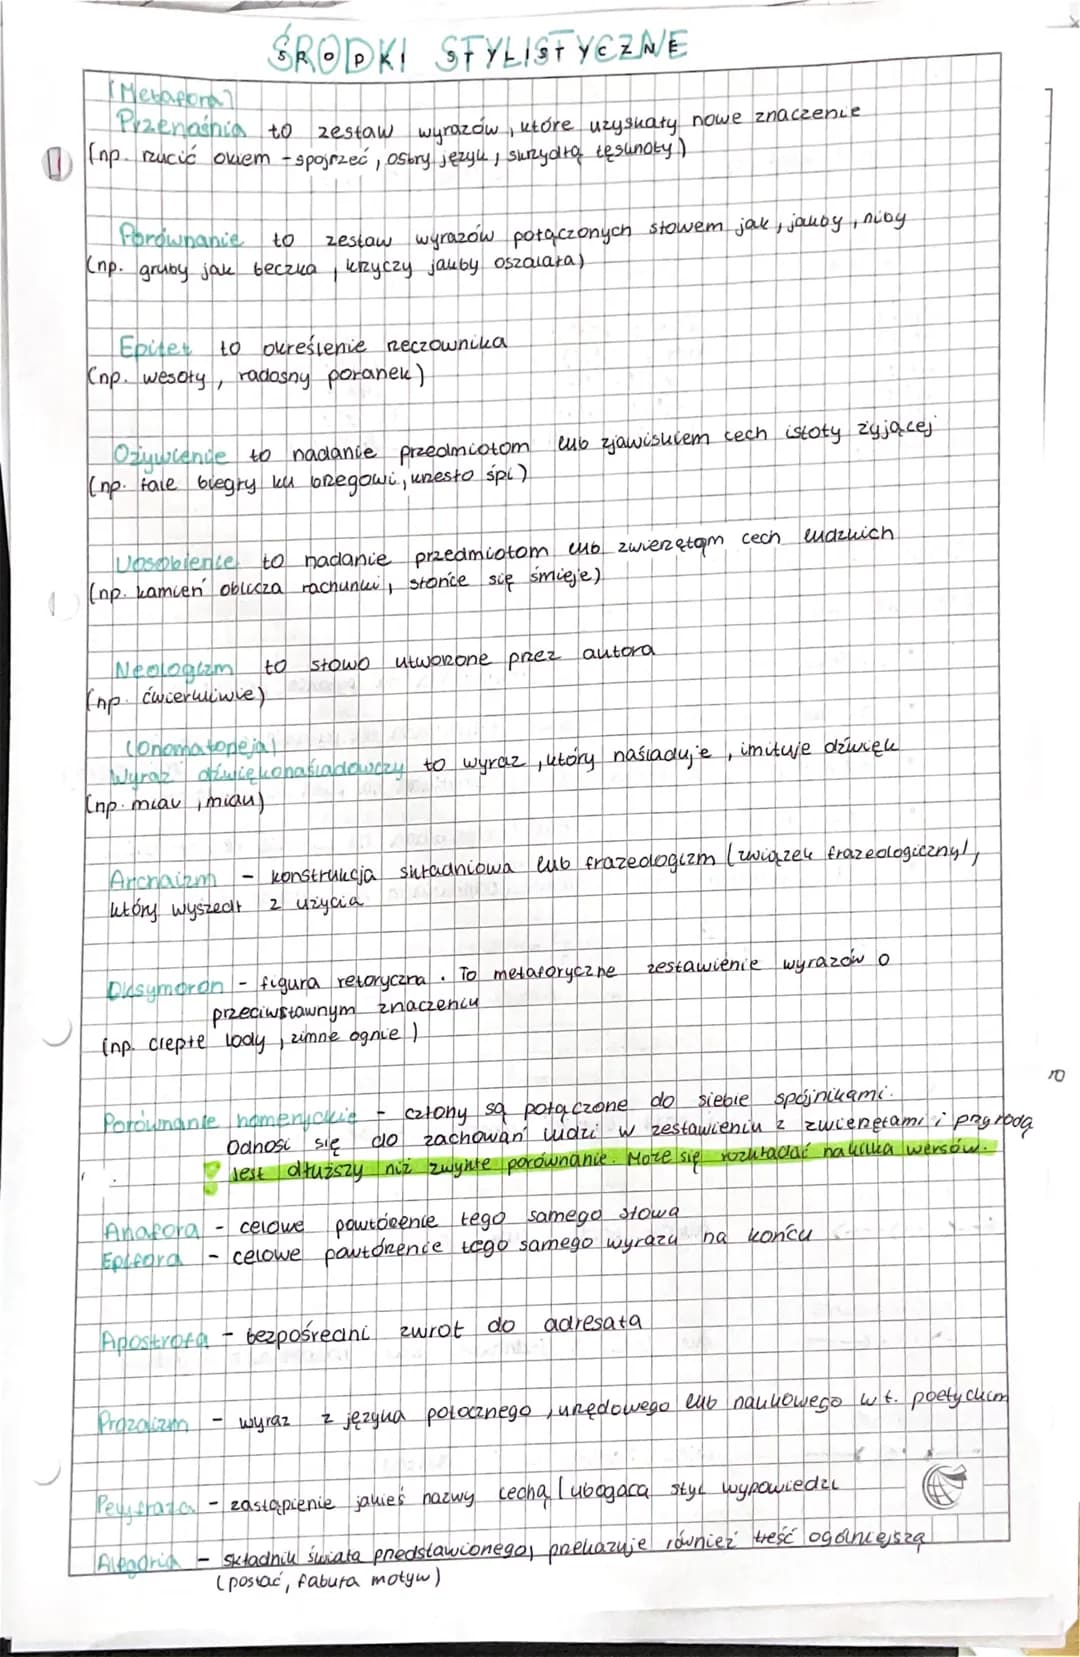 ŚRODKI STYLISTYCZNE
(Metafora)
Przenośnia to zestaw wyrazów, które uzyskały nowe znaczenie
(np. rzucić okiem - spojrzeć, ostry język, skrzydłą tęsknoty)
Porównanie to zestaw wyrazów połączonych słowem jak, jakby, niby
(np. gruby jak beczka, krzyczy jakby oszalała)
Epitet to określenie rzeczownika
(np. wesoły, radosny poranek)
Ożywienie to nadanie przedmiotom lub zjawiskiem cech istoty żyjącej
(np. fale biegły ku brzegowi, krzesło śpi)
Uosobienie to nadanie przedmiotom lub zwierzętom cech ludzkich
(np. kamień oblicza rachunki, słońce się śmieje)
Neologizm to słowo utworzone przez autora
(np. ćwierkliwie)
(Onomatopeja)
Wyraz dźwiękonaśladowczy to wyraz, który naśladuje, imituje dźwięk
(np. miau, miau)
Archaizm - konstrukcja składniowa lub frazeologizm (związek frazeologiczny),
który wyszedł z użycia
Oksymoron - figura retoryczna. To metaforyczne zestawienie wyrazów o
przeciwstawnym znaczeniu
(np. ciepłe lody, zimne ognie)
Porównanie homeryckie - człony są połączone do siebie spójnikami.
Odnosi się do zachowań ludzi w zestawieniu z zwierzętami i przyrodą
! Jest dłuższy niż zwykłe porównanie. Może się rozkładać na kilka wersów.
Anafora - celowe powtórzenie tego samego słowa
Epifora - celowe powtórzenie tego samego wyrazu na końcu
Apostrofa - bezpośredni zwrot do adresata
Prozaizm - wyraz z języka potocznego, urzędowego lub naukowego w t. poetyckim
Peryfraza - zastąpienie jakieś nazwy cechą (ubogaca styl wypowiedzi
Alegoria - składnik świata przedstawionego, przekazuje również treść ogólniejszą
(postać, fabuła motyw)